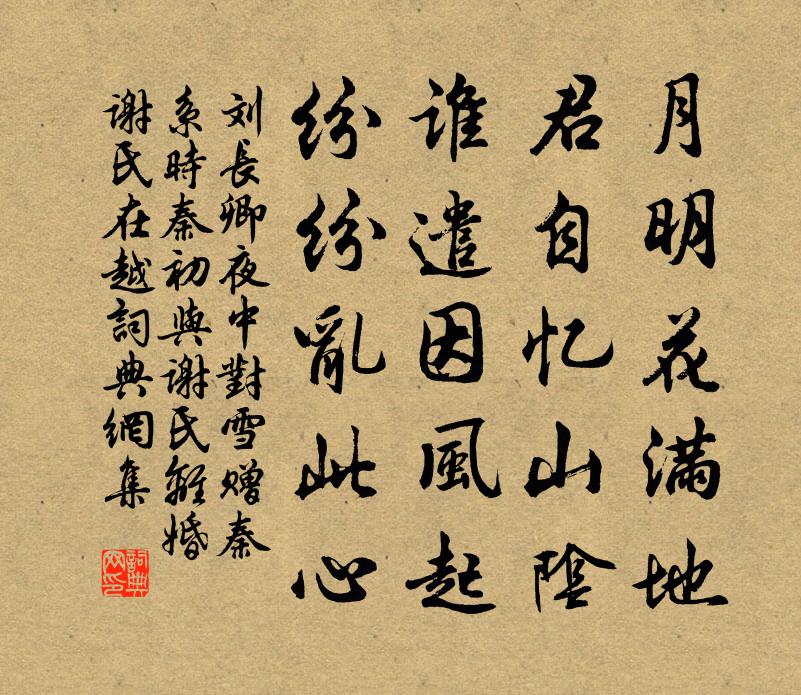 月明花满地
君自忆山陰
谁遣因風起
纷纷亂此心
刘長卿夜中對雪赠秦
系時秦初與谢氏離婚
谢氏在越詞典網集
詞典网印